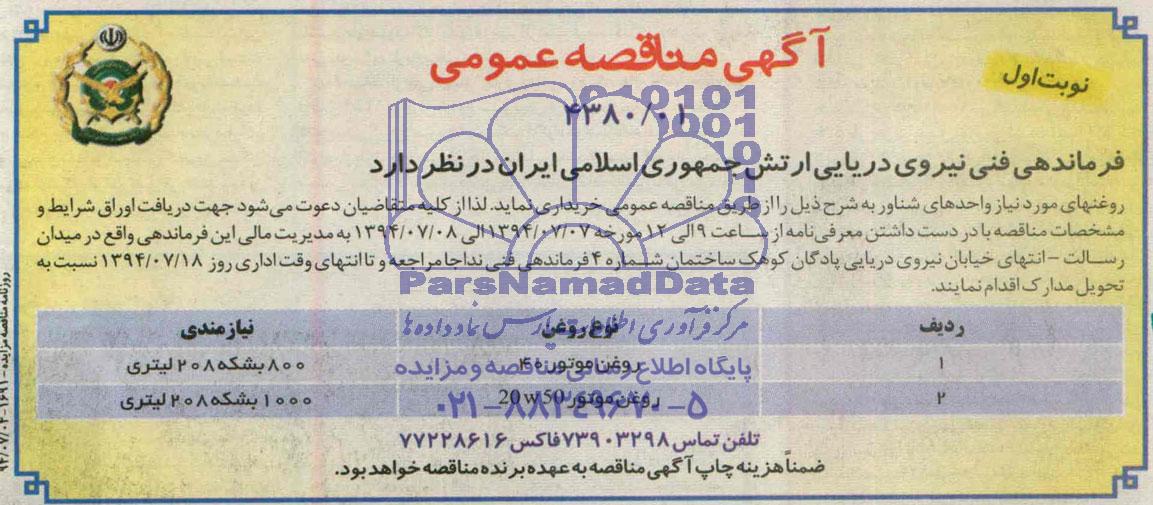 آگهی مناقصه عمومی
نوبت اول
۴۳۸۰/۰۱
فرماندهی فنی نیروی دریایی ارتش جمهوری اسلامی ایران در نظر دارد
روغنهای مورد نیاز واحدهای شناور به شرح ذیل را از طریق مناقصه عمومی خریداری نماید. لذا از کلیه متقاضیان دعوت می شود جهت دریافت اوراق شرایط و
مشخصات مناقصه با در دست داشتن معرفی نامه از ساعت ۹ الی ۱۲ مورخه ۱۳۹۴/۰۷/۰۷ الی ۱۳۹۴/۰۷/۰۸ به مدیریت مالی این فرماندهی واقع در میدان
رسالت - انتهای خیابان نیروی دریایی پادگان کوهک ساختمان شماره ۴ فرماندهی فنی نداجا مراجعه و تا انتهای وقت اداری روز ۱۳۹۴/۰۷/۱۸ نسبت به
تحویل مدارک اقدام نمایند.
ردیف نوع روغن نیازمندی
۱ روغن موتور ۴۰ ۸۰۰ بشکه ۲۰۸ لیتری
۲ روغن موتور 20 w 50 ۱۰۰۰ بشکه ۲۰۸ لیتری
تلفن تماس ۷۳۹۰۳۲۹۸ فاکس ۷۷۲۲۸۶۱۶
ضمناً هزینه چاپ آگهی مناقصه به عهده برنده مناقصه خواهد بود.
010101
0001
10
ParsNamadData
مرکز فرآوری اطلاعات پارس نماد داده ها
پایگاه اطلاع رسانی مناقصه و مزایده
۰۲۱-۸۸۳۴۹۶۷۰-۵
روزنامه مناقصه مزایده - ۱۶۹۱ - ۹۴/۰۷/۰۲